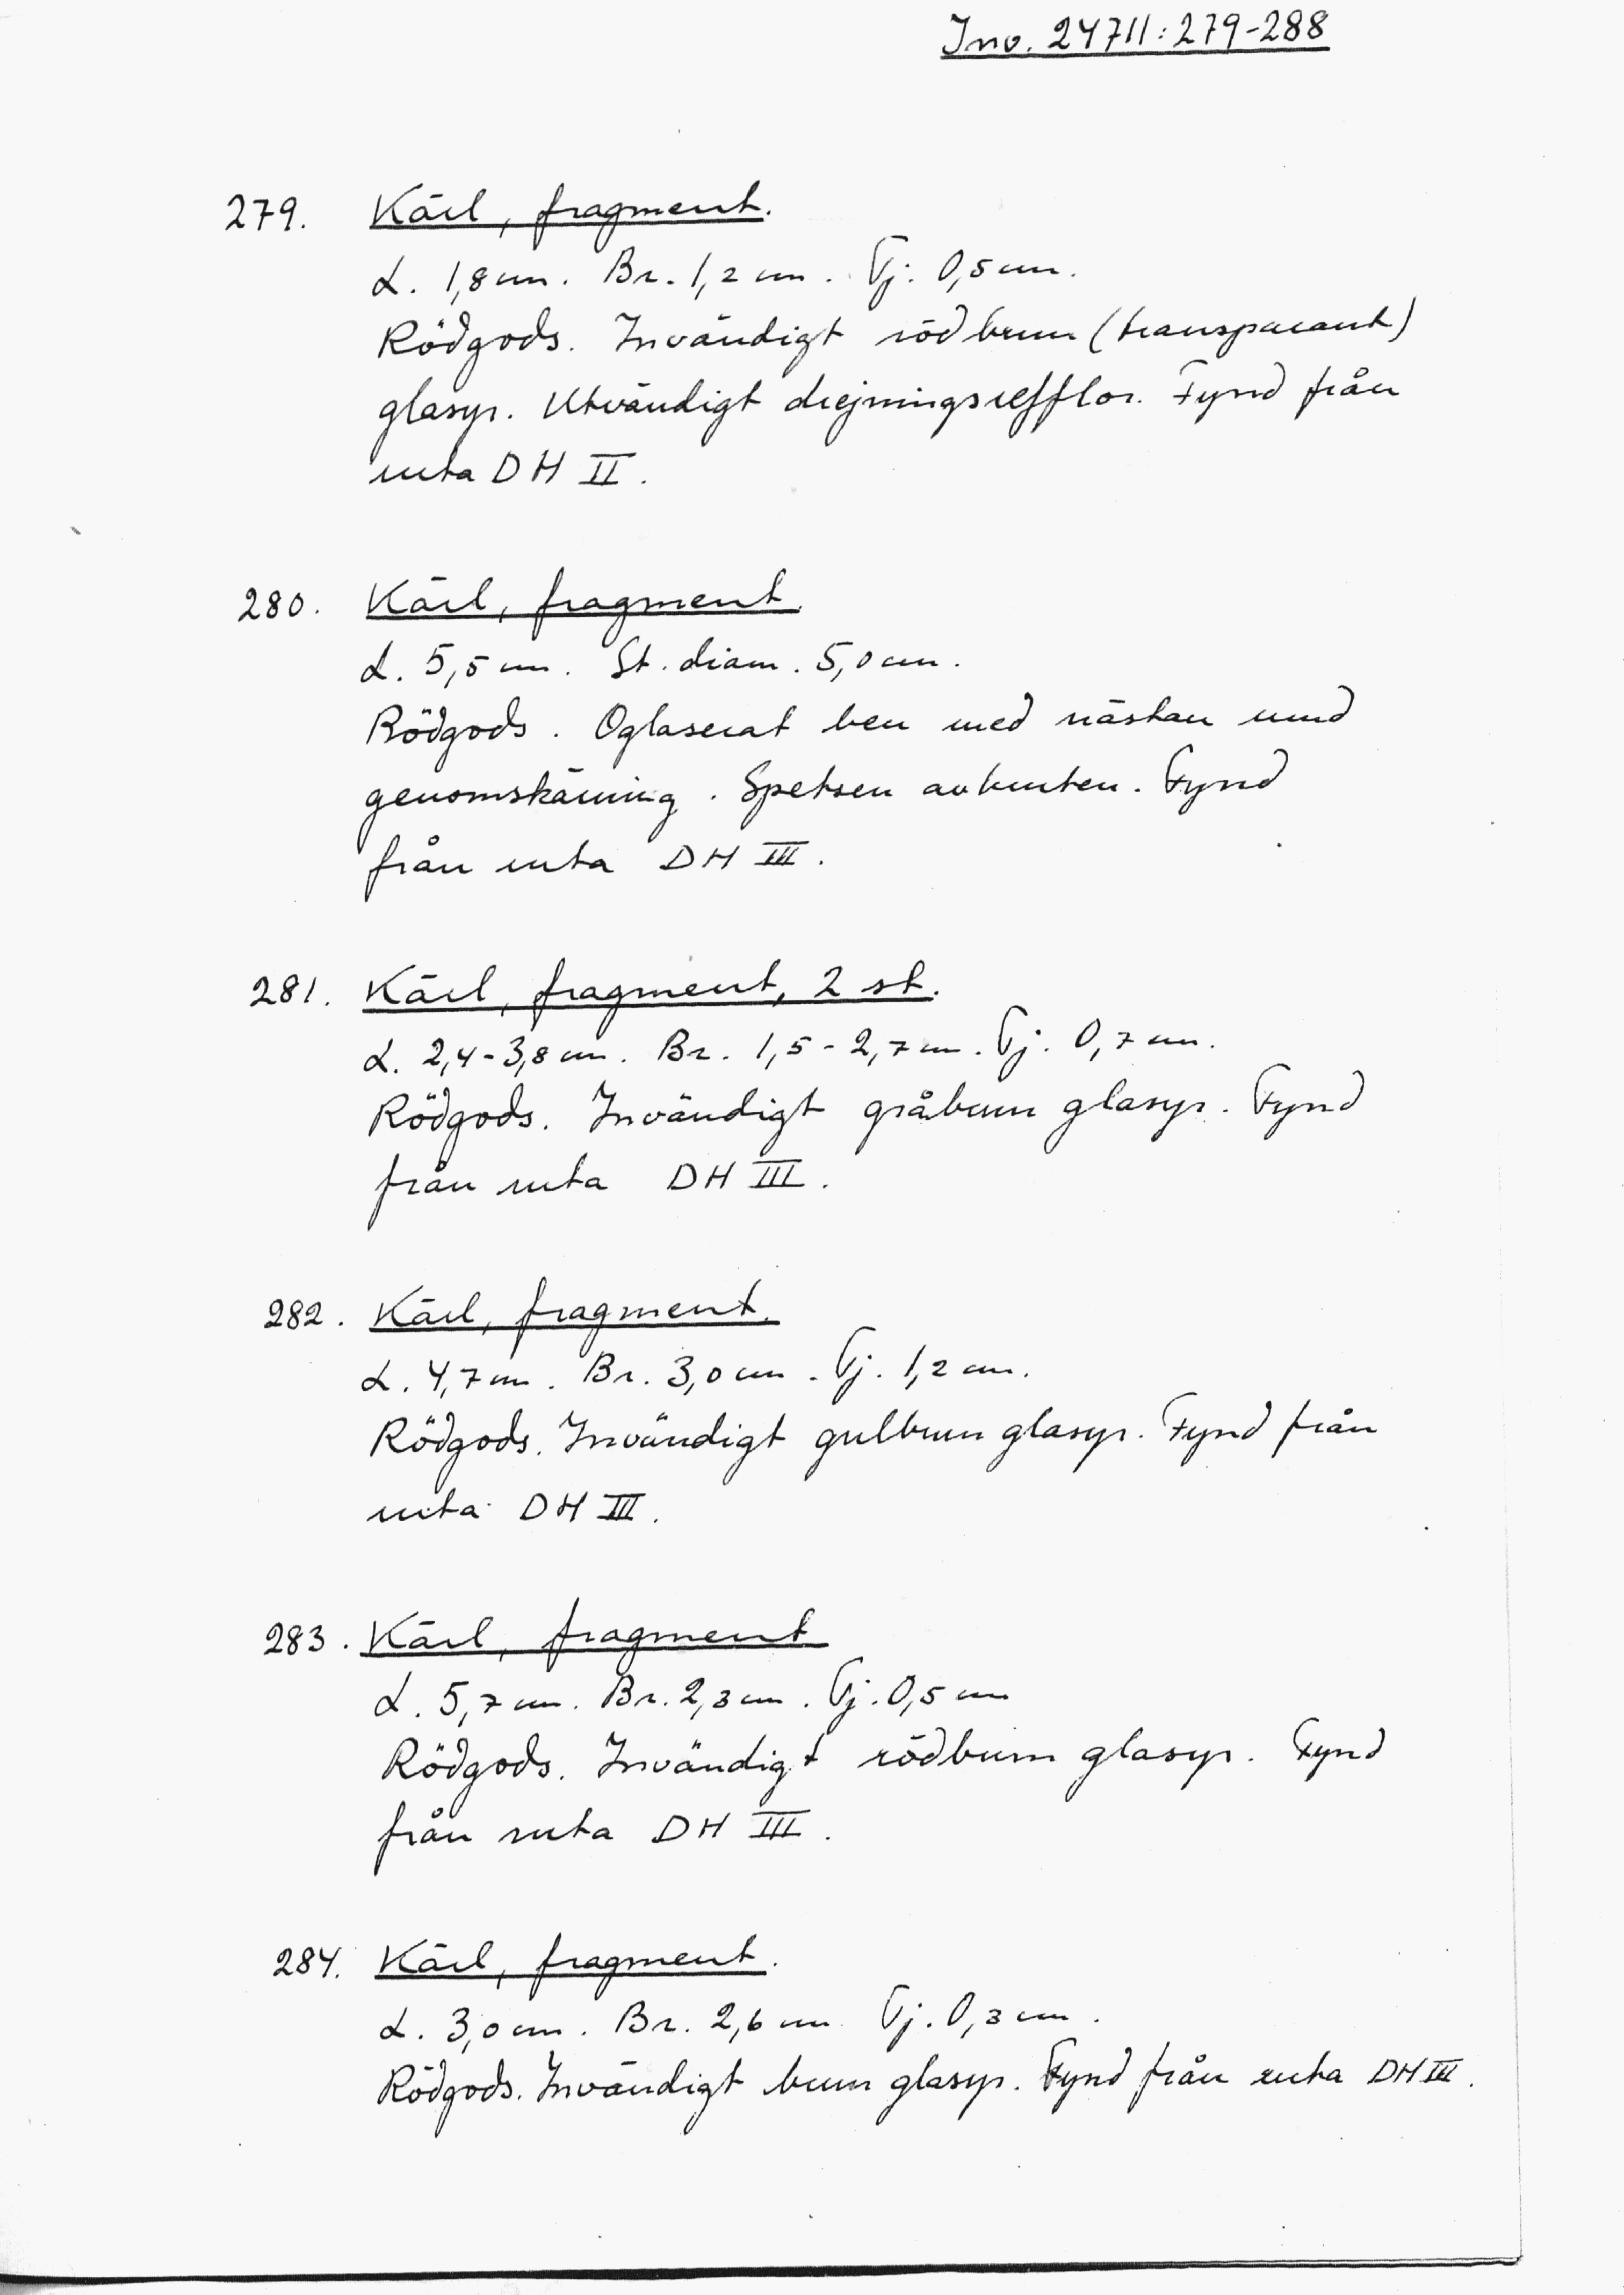 Inv. 24711:279-288
279. Kärl, fragment.
L. 1,8 cm. Br. 1,2 cm. Tj. 0,5 cm.
Rödgods. Invändigt rödbrun (transparant)
glasyr. Utvändigt drejningsrefflor. Fynd från
ruta DH II.
280. Kärl, fragment.
L. 5,5 cm. St. diam. 5,0 cm.
Rödgods. Oglaserat ben med nästan rund
genomskärning. Spetsen avbruten. Fynd
från ruta DH III.
281. Kärl, fragment, 2 st.
L. 2,4-3,8 cm. Br. 1,5-2,7 cm. Tj. 0,7 cm.
Rödgods. Invändigt gråbrun glasyr. Fynd
från ruta DH III.
282. Kärl, fragment.
L. 4,7 cm. Br. 3,0 cm. Tj. 1,2 cm.
Rödgods. Invändigt gulbrun glasyr. Fynd från
ruta DH III.
283. Kärl, fragment
L. 5,7 cm. Br. 2,3 cm. Tj. 0,5 cm
Rödgods. Invändigt rödbrun glasyr. Fynd
från ruta DH III.
284. Kärl, fragment.
L. 3,0 cm. Br. 2,6 cm Tj. 0,3 cm.
Rödgods. Invändigt brun glasyr. Fynd från ruta DH III.